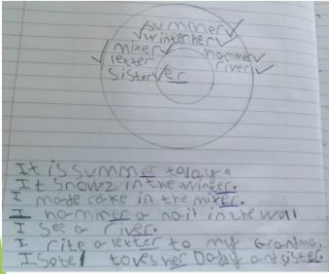 summer
winter her
mixer hammer
lexter river
sister er
It is summer today.
It snowz in the winter.
I made cake in the mixer.
I hammer a nail in the wall
I see a river.
I rite a lexter to my Grandma.
ISobel loves her Daddy and sister.